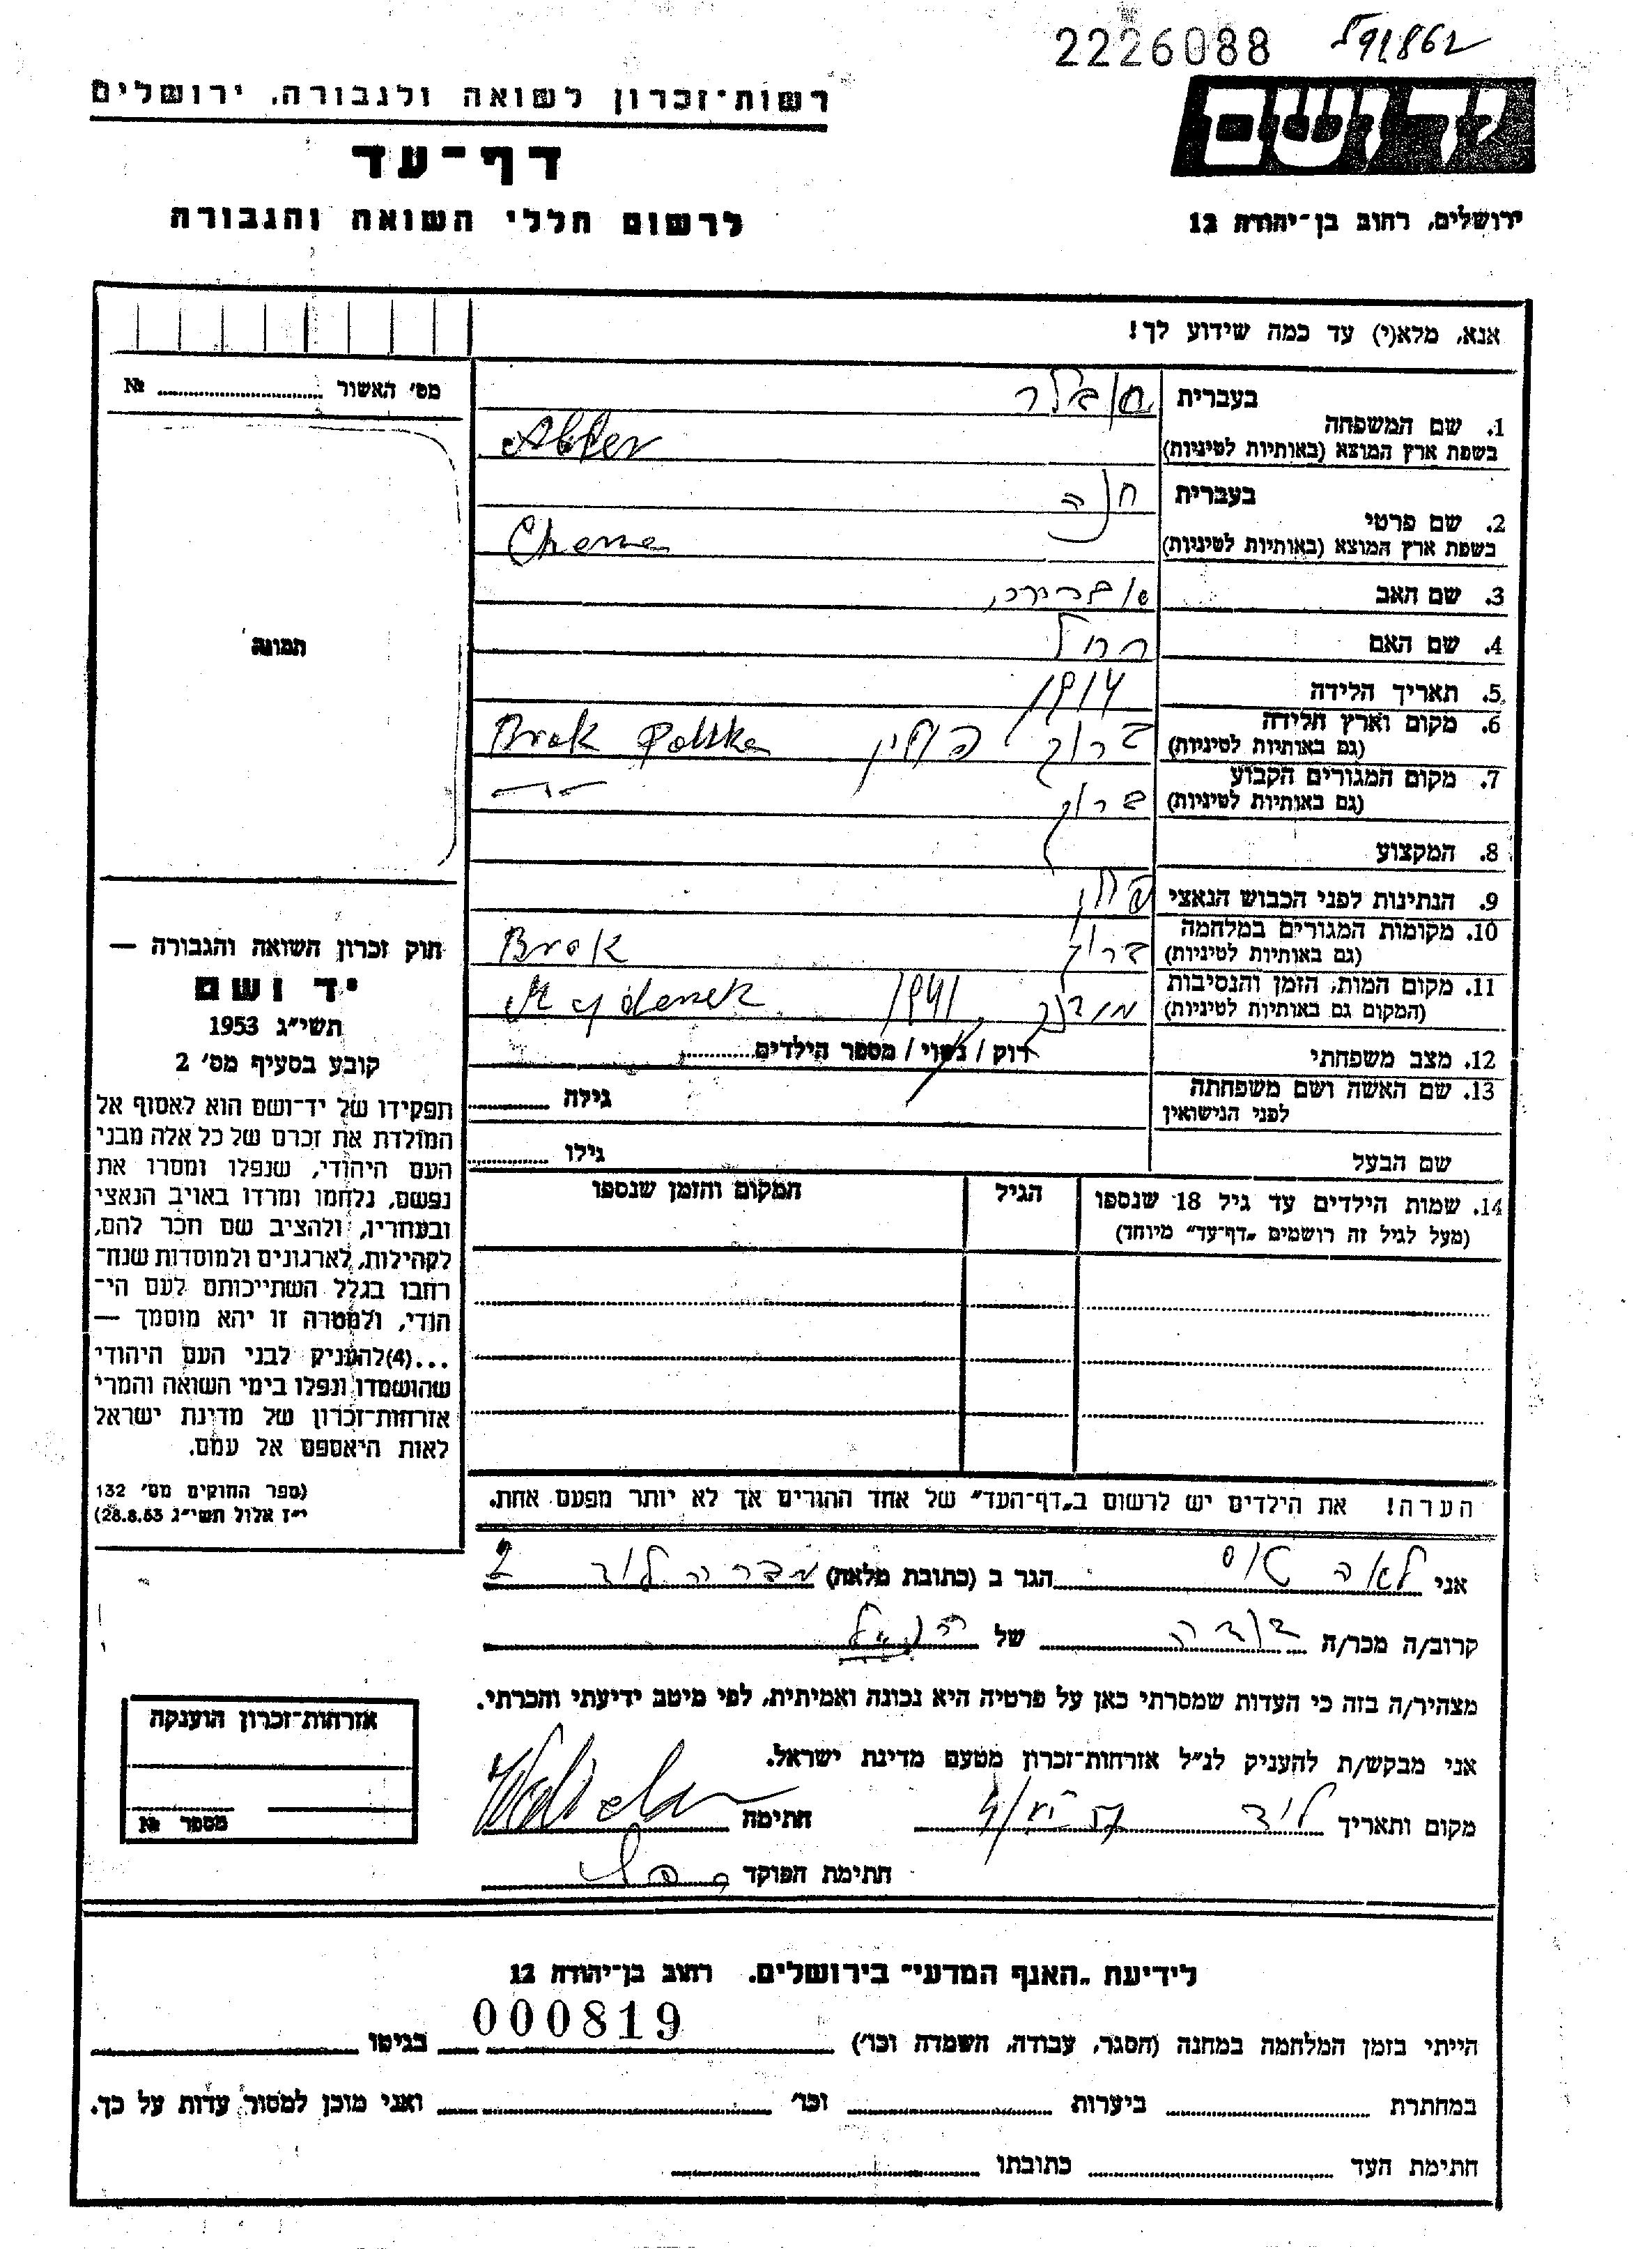 2226088
רשות־זכרון לשואה ולגבורה, ירושלים
יד ושם
דף־עד
לרשום חללי השואה והגבורה
ירושלים, רחוב בן־יהודה 12
אנא, מלא(י) עד כמה שידוע לך!
מס׳ האשור № 
1. שם המשפחה בעברית
בשפת ארץ המוצא (באותיות לטיניות)
2. שם פרטי בעברית חנה
בשפת ארץ המוצא (באותיות לטיניות)
3. שם האב
4. שם האם רחל
5. תאריך הלידה 1914
6. מקום וארץ הלידה ברוק פולין Brok Polska
(גם באותיות לטיניות)
7. מקום המגורים הקבוע ברוק
(גם באותיות לטיניות)
8. המקצוע
9. הנתינות לפני הכבוש הנאצי
10. מקומות המגורים במלחמה ברוק Brok
(גם באותיות לטיניות)
11. מקום המות, הזמן והנסיבות 1941 Majdanek
(המקום גם באותיות לטיניות)
12. מצב משפחתי רוק / נשוי / מספר הילדים
13. שם האשה ושם משפחתה גילה
לפני הנישואין
שם הבעל גילו
14. שמות הילדים עד גיל 18 שנספו הגיל המקום והזמן שנספו
(מעל לגיל זה רושמים „דף־עד״ מיוחד)
הערה! את הילדים יש לרשום ב„דף־העד״ של אחד ההורים אך לא יותר מפעם אחת.
תמונה
חוק זכרון השואה והגבורה —
יד ושם
תשי״ג 1953
קובע בסעיף מס׳ 2
תפקידו של יד־ושם הוא לאסוף אל
המולדת את זכרם של כל אלה מבני
העם היהודי, שנפלו ומסרו את
נפשם, נלחמו ומרדו באויב הנאצי
ובעוזריו, ולהציב שם וזכר להם,
לקהילות, לארגונים ולמוסדות שנח־
רבו בגלל השתייכותם לעם הי־
הודי, ולמטרה זו יהא מוסמך —
...(4)להעניק לבני העם היהודי
שהושמדו ונפלו בימי השואה והמרי
אזרחות־זכרון של מדינת ישראל
לאות היאספם אל עמם.
(ספר החוקים מס׳ 132
י״ז אלול תשי״ג 28.8.53)
אני לאה הגר ב (כתובת מלאה) לוד 2
קרוב/ה מכר/ה דודה של
מצהיר/ה בזה כי העדות שמסרתי כאן על פרטיה היא נכונה ואמיתית, לפי מיטב ידיעתי והכרתי.
אני מבקש/ת להעניק לנ״ל אזרחות־זכרון מטעם מדינת ישראל.
מקום ותאריך לוד חתימה
חתימת הפוקד
אזרחות־זכרון הוענקה
מספר №
לידיעת „האגף המדעי״ בירושלים. רחוב בן־יהודה 12
000819
הייתי בזמן המלחמה במחנה (הסגר, עבודה, השמדה וכו׳) בגיטו
במחתרת ביערות וכו׳ ואני מוכן למסור עדות על כך.
חתימת העד כתובתו